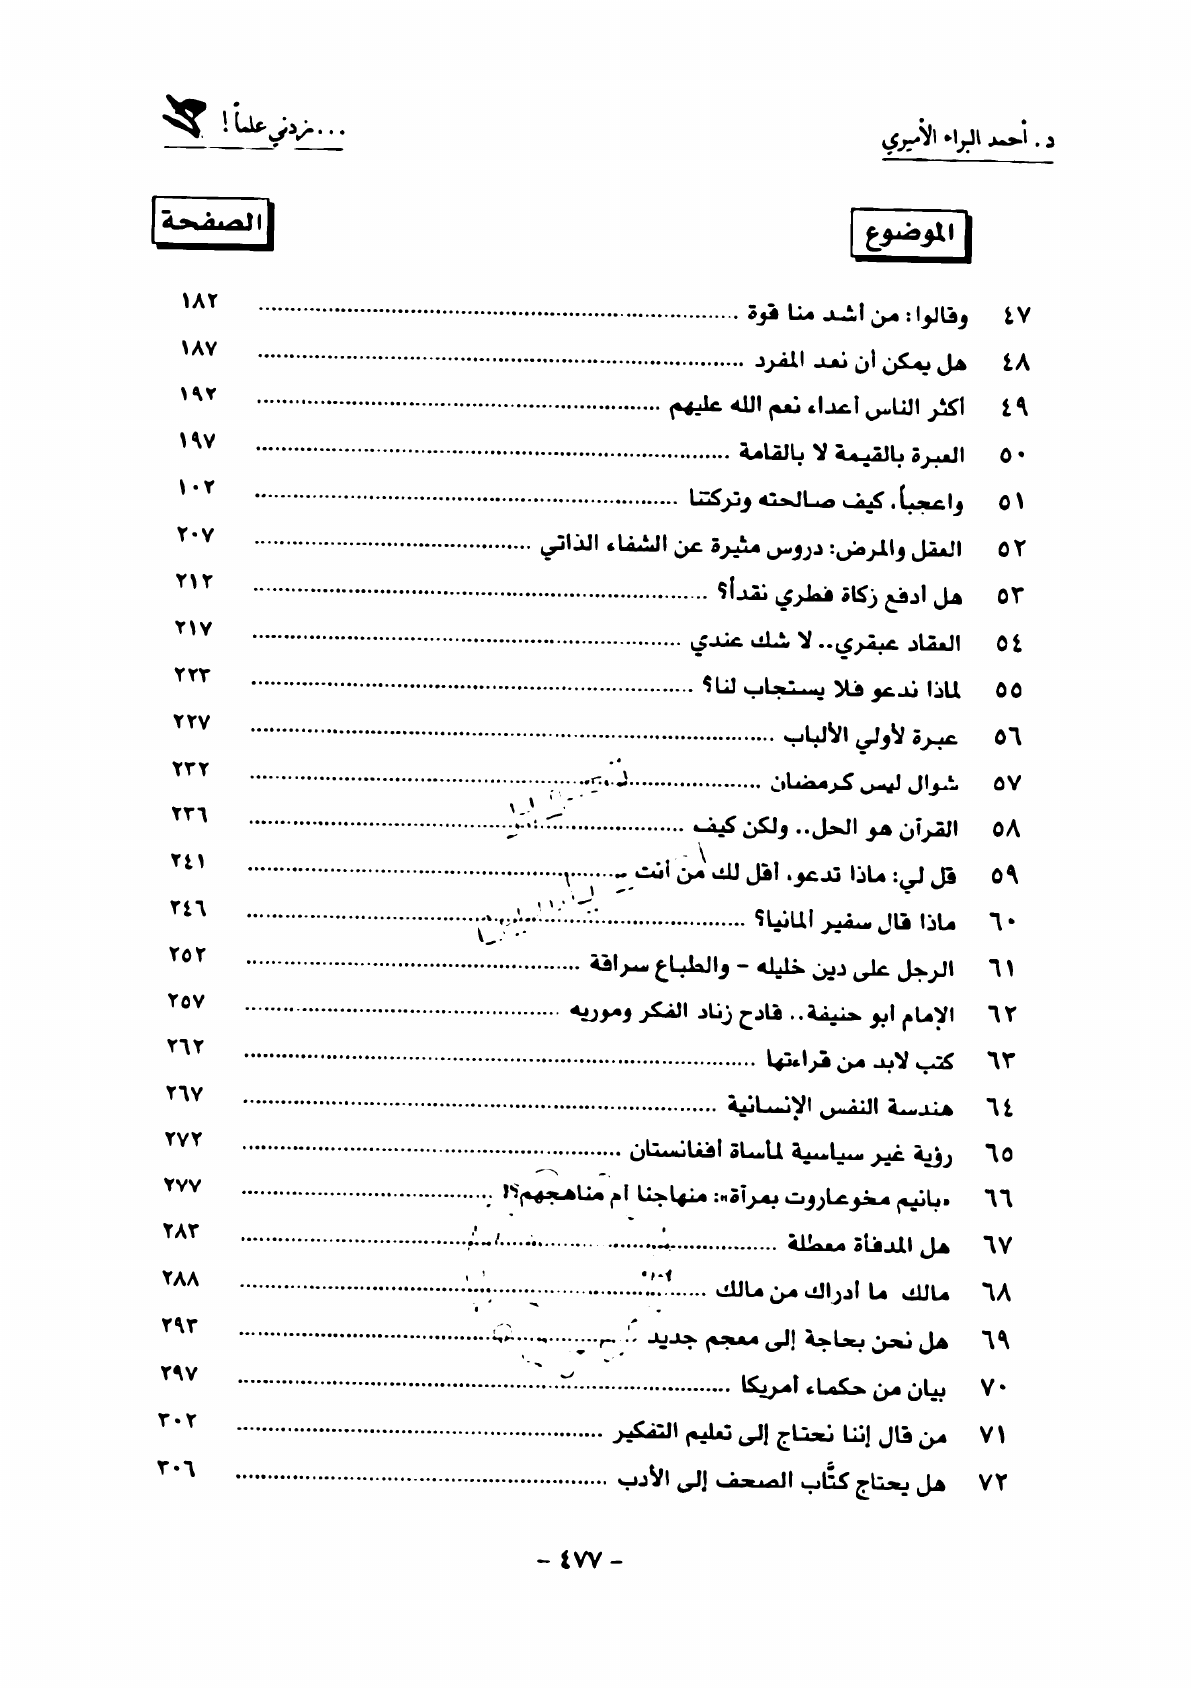 د. أحمد البراء الأميري
...زدني علماً!
الموضوع الصفحة
٤٧ وقالوا: من أشد منا قوة ١٨٢
٤٨ هل يمكن أن نعد المفرد ١٨٧
٤٩ أكثر الناس أعداء نعم الله عليهم ١٩٢
٥٠ العبرة بالقيمة لا بالقامة ١٩٧
٥١ واعجباً، كيف صالحته وتركتنا ١٠٢
٥٢ العقل والمرض: دروس مثيرة عن الشفاء الذاتي ٢٠٧
٥٣ هل أدفع زكاة فطري نقداً؟ ٢١٢
٥٤ العقاد عبقري.. لا شك عندي ٢١٧
٥٥ لماذا ندعو فلا يستجاب لنا؟ ٢٢٣
٥٦ عبرة لأولي الألباب ٢٢٧
٥٧ شوال ليس كرمضان ٢٣٢
٥٨ القرآن هو الحل.. ولكن كيف ٢٣٦
٥٩ قل لي: ماذا تدعو، أقل لك من أنت ٢٤١
٦٠ ماذا قال سفير ألمانيا؟ ٢٤٦
٦١ الرجل على دين خليله - والطباع سراقة ٢٥٢
٦٢ الإمام ابو حنيفة.. قادح زناد الفكر وموريه ٢٥٧
٦٣ كتب لابد من قراءتها ٢٦٢
٦٤ هندسة النفس الإنسانية ٢٦٧
٦٥ رؤية غير سياسية لمأساة أفغانستان ٢٧٢
٦٦ «بانيم مخوعاروت بمرآة»: منهاجنا أم مناهجهم؟! ٢٧٧
٦٧ هل المدفأة معطلة ٢٨٣
٦٨ مالك ما أدراك من مالك ٢٨٨
٦٩ هل نحن بحاجة إلى معجم جديد ٢٩٣
٧٠ بيان من حكماء أمريكا ٢٩٧
٧١ من قال إننا نحتاج إلى تعليم التفكير ٣٠٢
٧٢ هل يحتاج كتَّاب الصحف إلى الأدب ٣٠٦
- ٤٧٧ -